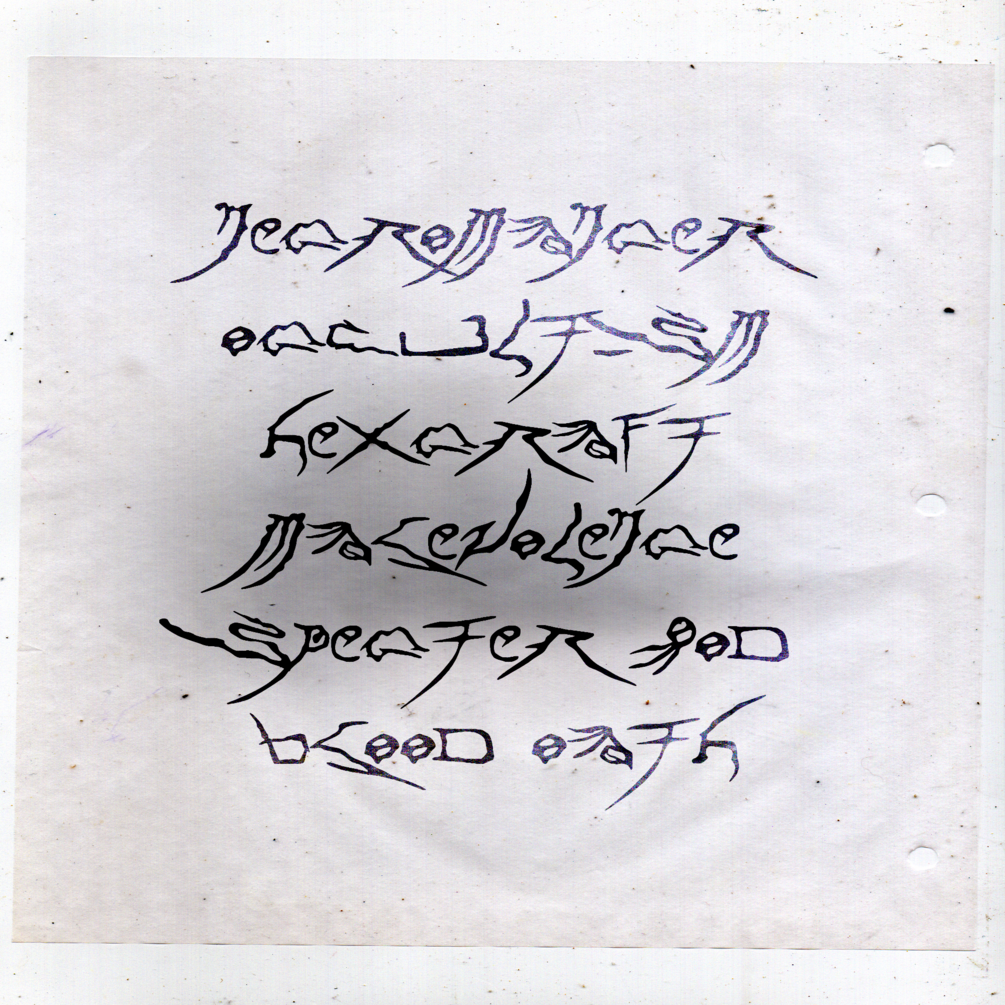 necromancer
occultism
hexcraft
malevolence
specter god
blood oath